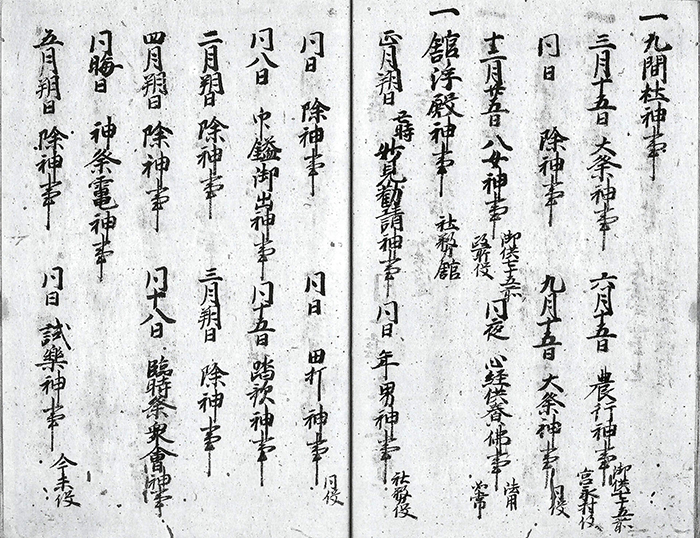 一九間杜神事
三月十五日 大祭神事 六月十五日 農行神事 御供七十五前 宮永村役
同日 除神事 九月十五日 大祭神事 同役
十二月廿五日 八女神事 御供七十五前 政所役 同夜 心経供養佛事 法用如常
一舘浮殿神事 社務舘
正月朔日 妙見勧請神事 同日 年男神事 社務役
同日 除神事 同日 田打神事 同役
同八日 巾鎰御出神事 同十五日 踏歌神事
二月朔日 除神事 三月朔日 除神事
四月朔日 除神事 同十八日 臨時祭集會神事
同晦日 神祭竃神事
五月朔日 除神事 同日 試樂神事 今未役